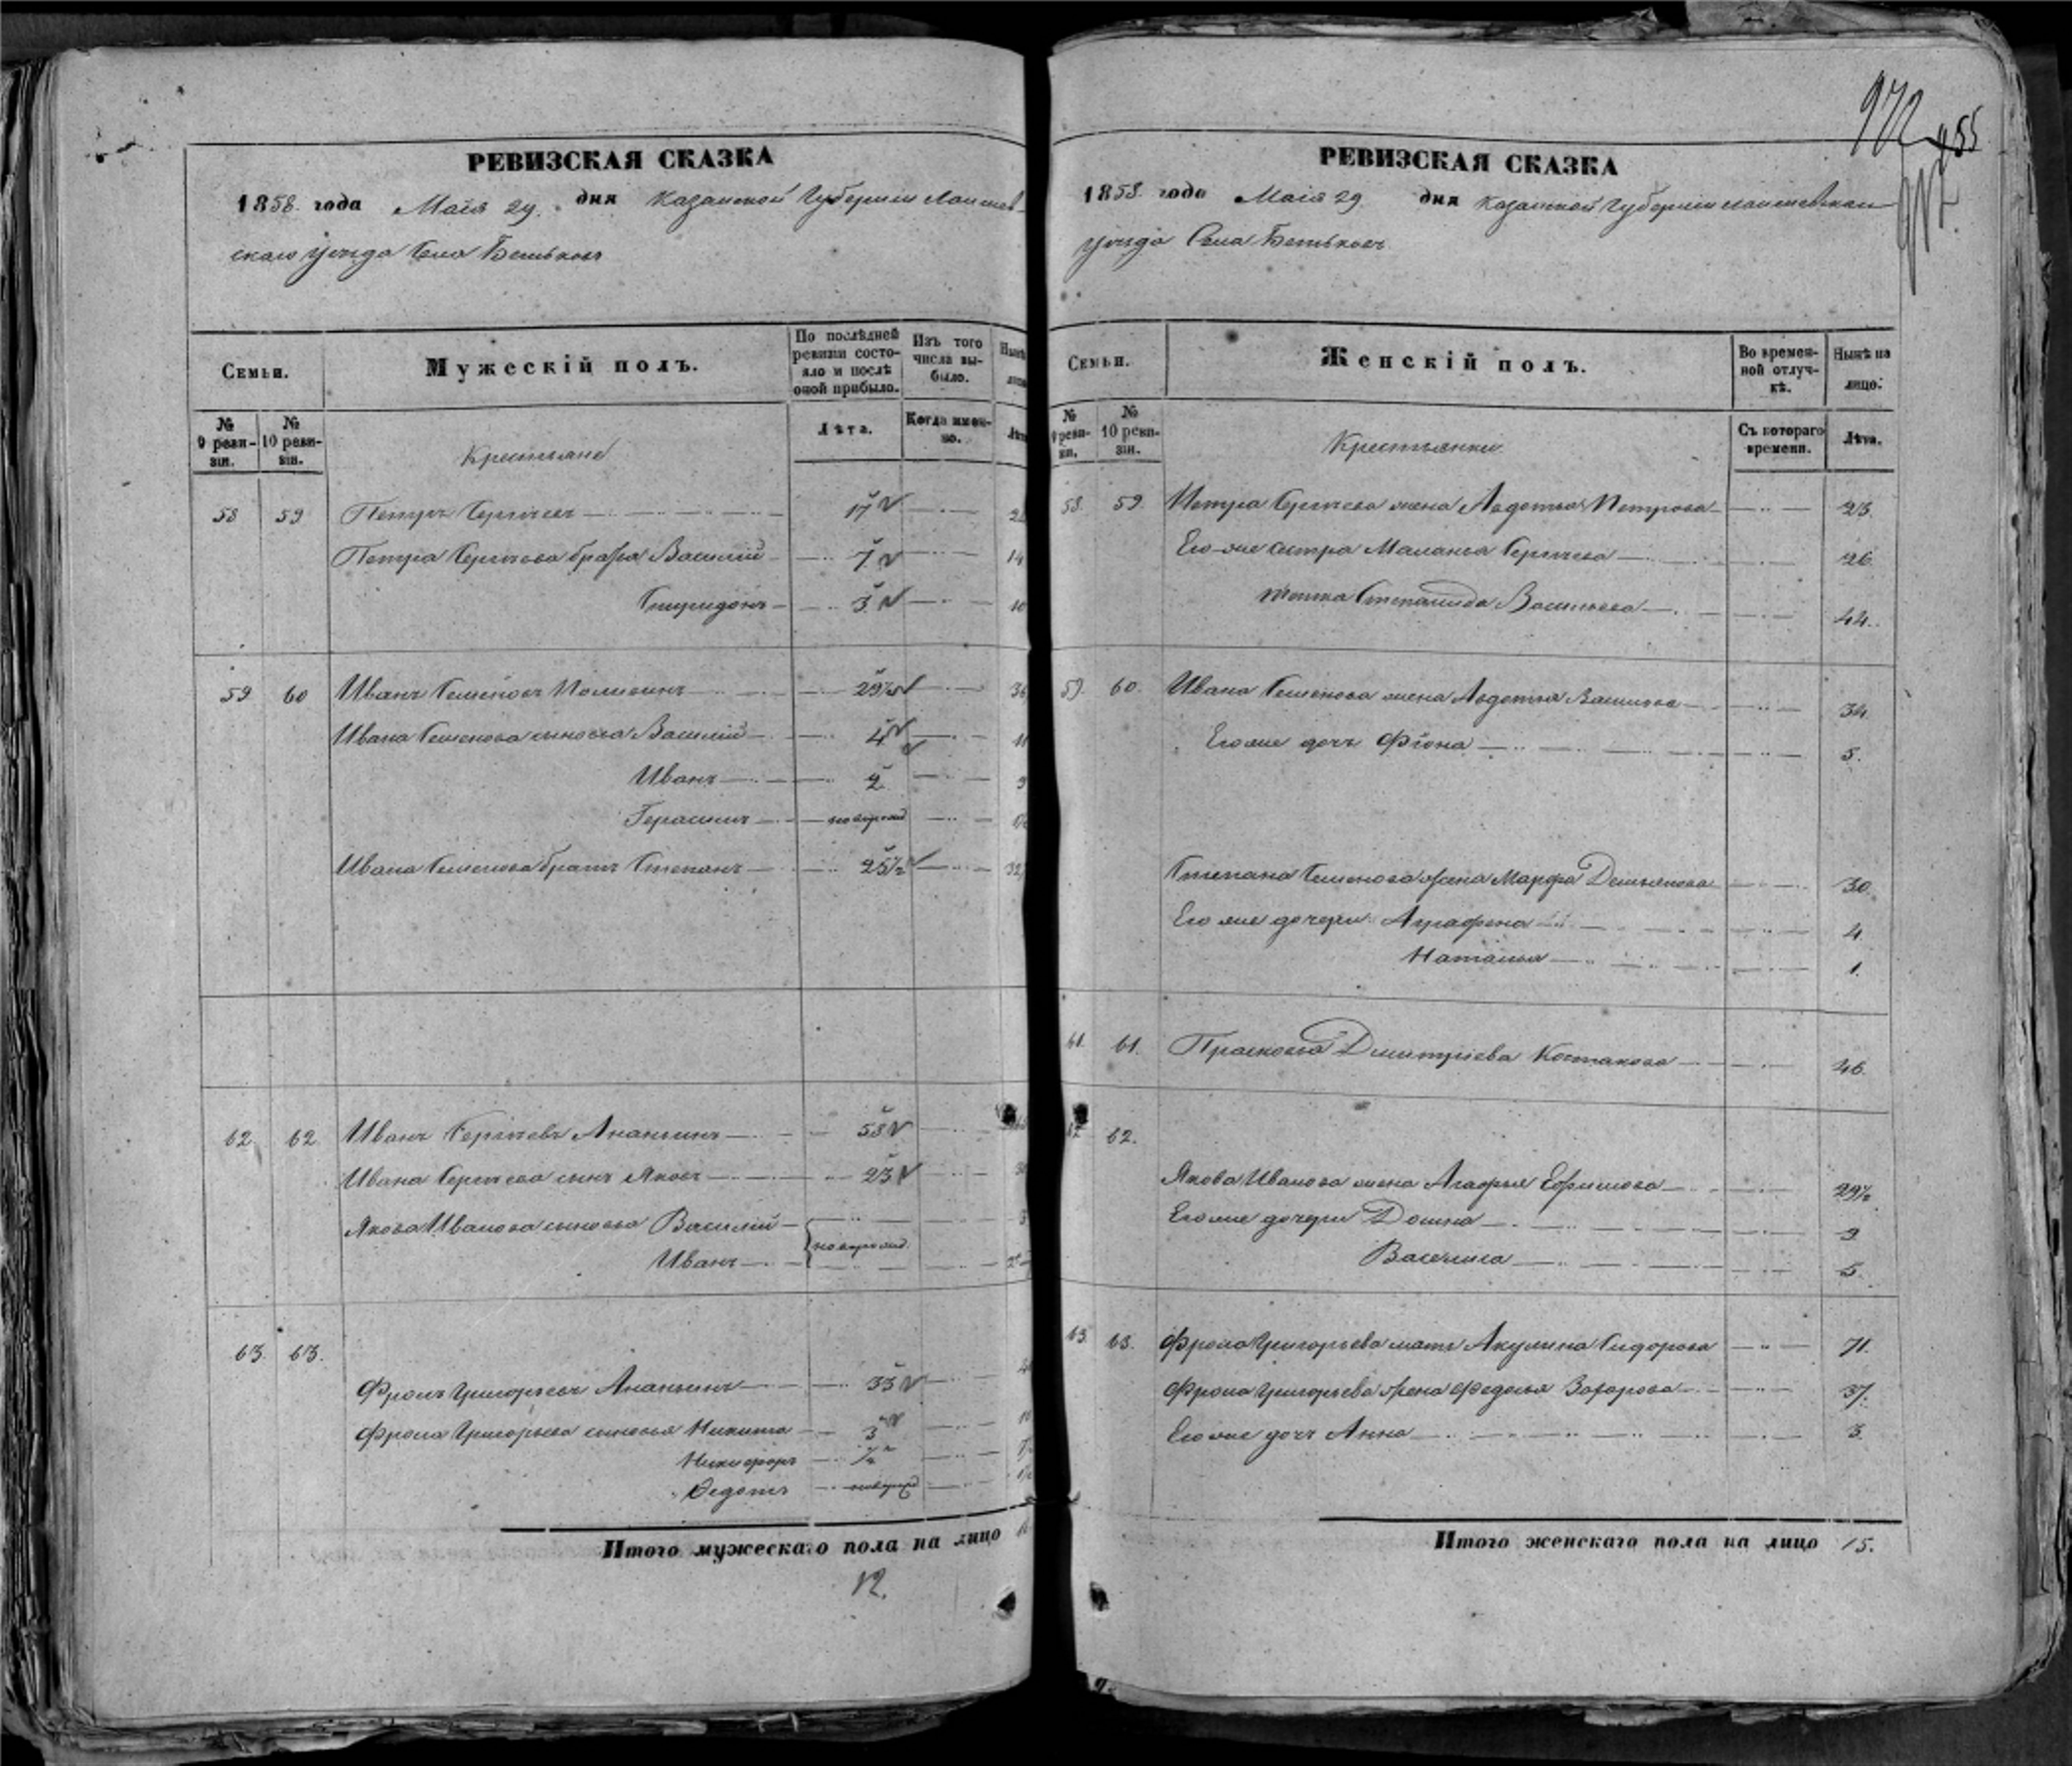 РЕВИЗСКАЯ СКАЗКА
1858 года Маія 29 дня Казанской Губерніи Лаишев-
скаго уѣзда Села Бетьковъ
Семьи.
Мужескій полъ.
По послѣдней ревизіи состояло и послѣ оной прибыло.
Изъ того числа выбыло.
№ 9 ревизіи.
№ 10 ревизіи.
Лѣта.
Когда именно.
Крестьяне
58 59 Петръ Сергѣевъ 17
Петра Сергѣева братья Василій 7 14
Спиридонъ 3 10
59 60 Иванъ Семеновъ 29½
Ивана Семенова сыновья Василій 4 11
Иванъ 2 9
Герасимъ новорожд
Ивана Семенова братъ Степанъ 25½
62 62 Иванъ Сергѣевъ Ананьинъ 58
Ивана Сергѣева сынъ Яковъ 23
Якова Иванова сыновья Василій
новорожд.
Иванъ
63. 63.
Фролъ Григорьевъ Ананьинъ 33
Фрола Григорьева сыновья Никита 3
Никифоръ ½
Федотъ новорожд
Итого мужескаго пола на лицо
12.
972
955
РЕВИЗСКАЯ СКАЗКА
1858 года Маія 29 дня Казанской Губерніи Лаишевскаго
уѣзда Села Бетьковъ
Семьи.
Женскій полъ.
Во временной отлучкѣ.
Нынѣ на лицо.
№ 9 ревизіи.
№ 10 ревизіи.
Съ котораго времени.
Лѣта.
Крестьянки
58. 59. Петра Сергѣева жена Авдотья Петрова 23.
Его же сестра Маланья Сергѣева 26.
тетка Степанида Васильева 44.
59. 60. Ивана Семенова жена Авдотья Васильева 34
Его же дочь Фіона 5.
Степана Семенова жена Марфа Демьянова 30.
Его же дочери Аграфена 4.
Наталья 1.
61. 61. Прасковья Дмитріева 46.
62 62.
Якова Иванова жена Агафья Ефимова 29½
Его же дочери Домна 9
Василиса 5.
63. 63. Фрола Григорьева мать Акулина Сидорова 71.
Фрола Григорьева жена Федосья Захарова 37.
Его же дочь Анна 3.
Итого женскаго пола на лицо 15.